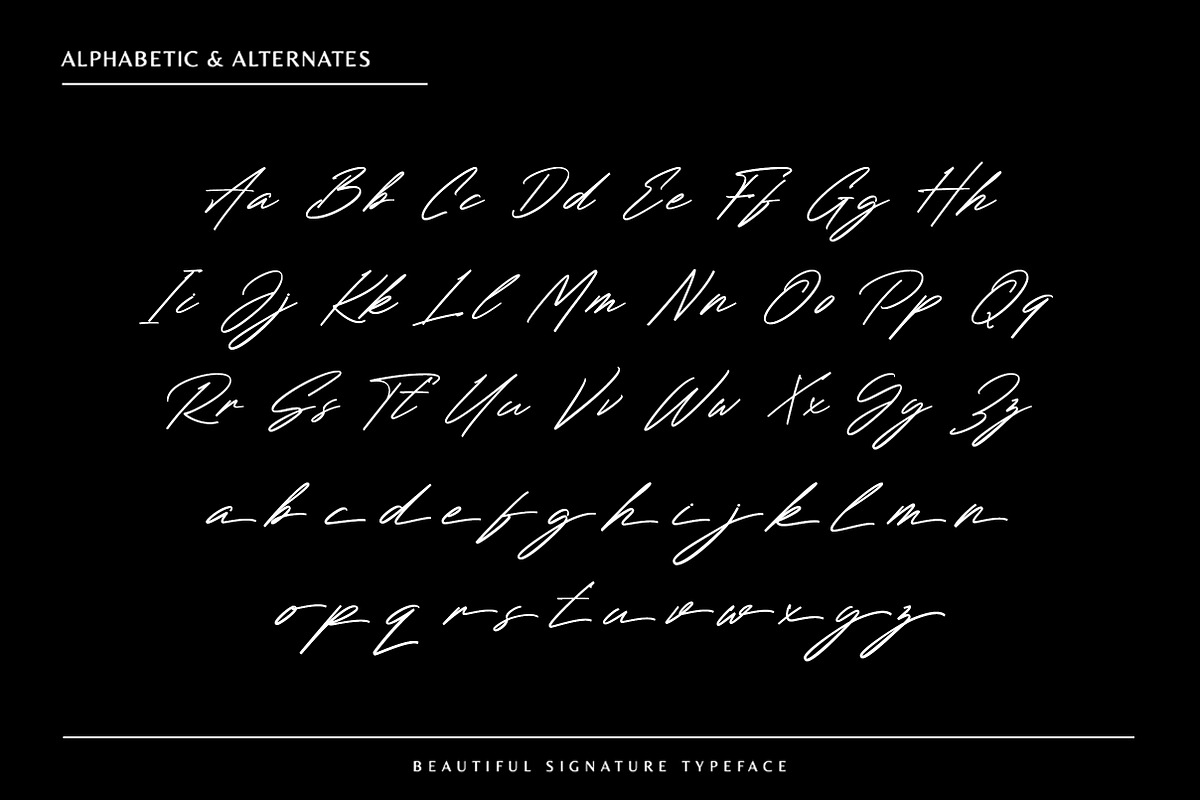 ALPHABETIC & ALTERNATES
Aa Bb Cc Dd Ee Ff Gg Hh
Ii Jj Kk Ll Mm Nn Oo Pp Qq
Rr Ss Tt Uu Vv Ww Xx Yy Zz
a b c d e f g h i j k l m n
o p q r s t u v w x y z
BEAUTIFUL SIGNATURE TYPEFACE